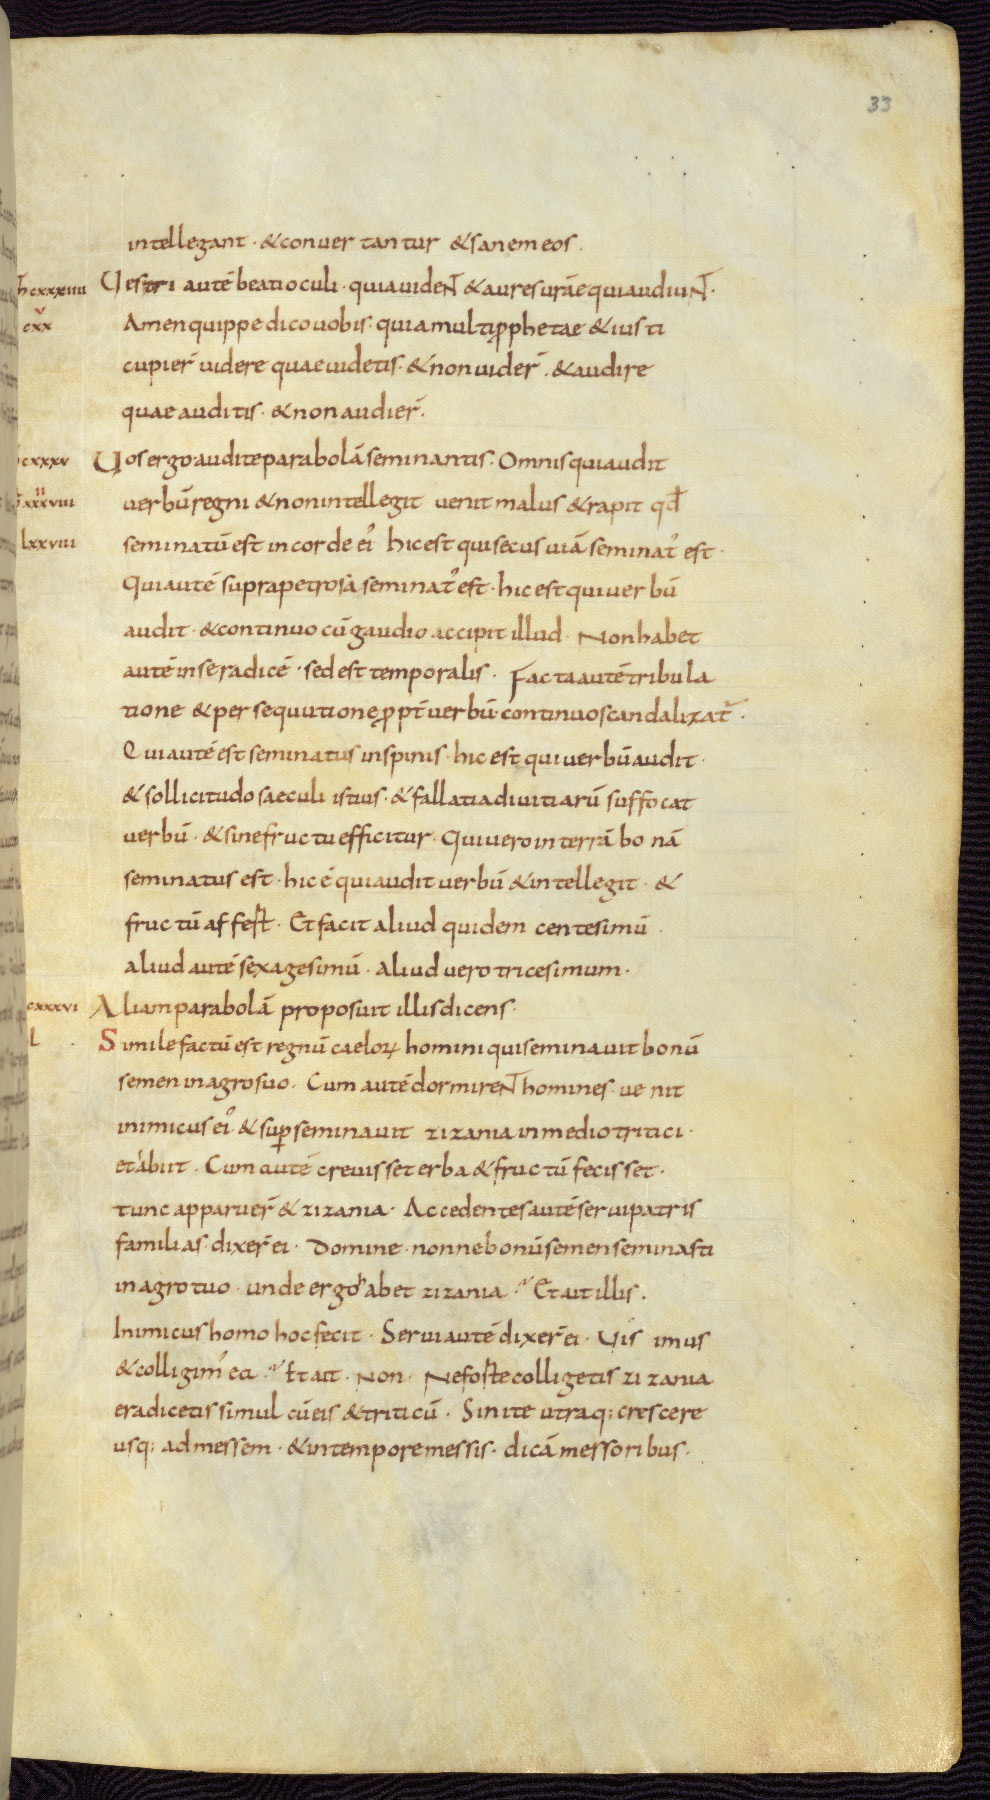 33
intellegant · & conuertantur & sanem eos.
h cxxxiiii Uestri autē beati oculi · quia uideNT̄ & aures urāe quia audiuNT̄ ·
cxx Amen quippe dico uobis · quia multi ꝓphetae & iusti
cupier̄ uidere quae uidetis · & non uider̄ . & audire
quae auditis · & non audier̄ .
cxxxv Uos ergo audite parabolā seminantis · Omnis qui audit
xxxviii uerbū regni & non intellegit uenit malus & rapit qđ
lxxviii seminatū est in corde ei᾽ hic est qui secus uiā seminat᾽ est ·
Qui autē supra petrosa seminat᾽ est · hic est qui uerbū
audit · & continuo cū gaudio accipit illud · Non habet
autē in se radicē · sed est temporalis · Facta autē tribula
tione & persequutione ꝓpt̄ uerbū · continuo scandalizat᾽ ·
Qui autē est seminatus in spinis · hic est qui uerbū audit ·
& sollicitudo saeculi istius · & fallatia diuitiarū suffocat
uerbū · & sine fructu efficitur · Qui uero in terrā bonā
seminatus est · hic ē qui audit uerbū & intellegit · &
fructū affest · Et facit aliud quidem centesimū ·
aliud autē sexagesimū · aliud uero tricesimum ·
cxxxvi Aliam parabolā proposuit illis dicens ·
L Simile factū est regnū caeloꝝ homini qui seminauit bonū
semen in agro suo . Cum autē dormireNT̄ homines · uenit
inimicus ei᾽ & suꝑseminauit zizania in medio tritici ·
et abiit . Cum autē creuisset erba & fructū fecisset ·
tunc apparuer̄ & zizania · Accedentes autē serui patris
familias · dixer̄ ei · Domine · nonne bonū semen seminasti
in agro tuo · unde ergo habet zizania · Et ait illis .
Inimicus homo hoc fecit · Serui autē dixer̄ ei · Uis imus
& colligim᾽ ea · Et ait · Non · Ne foste colligetis zizania
eradicetis simul cū eis & triticū · Sinite utraq; crescere
usq; ad messem · & in tempore messis · dicā messoribus ·